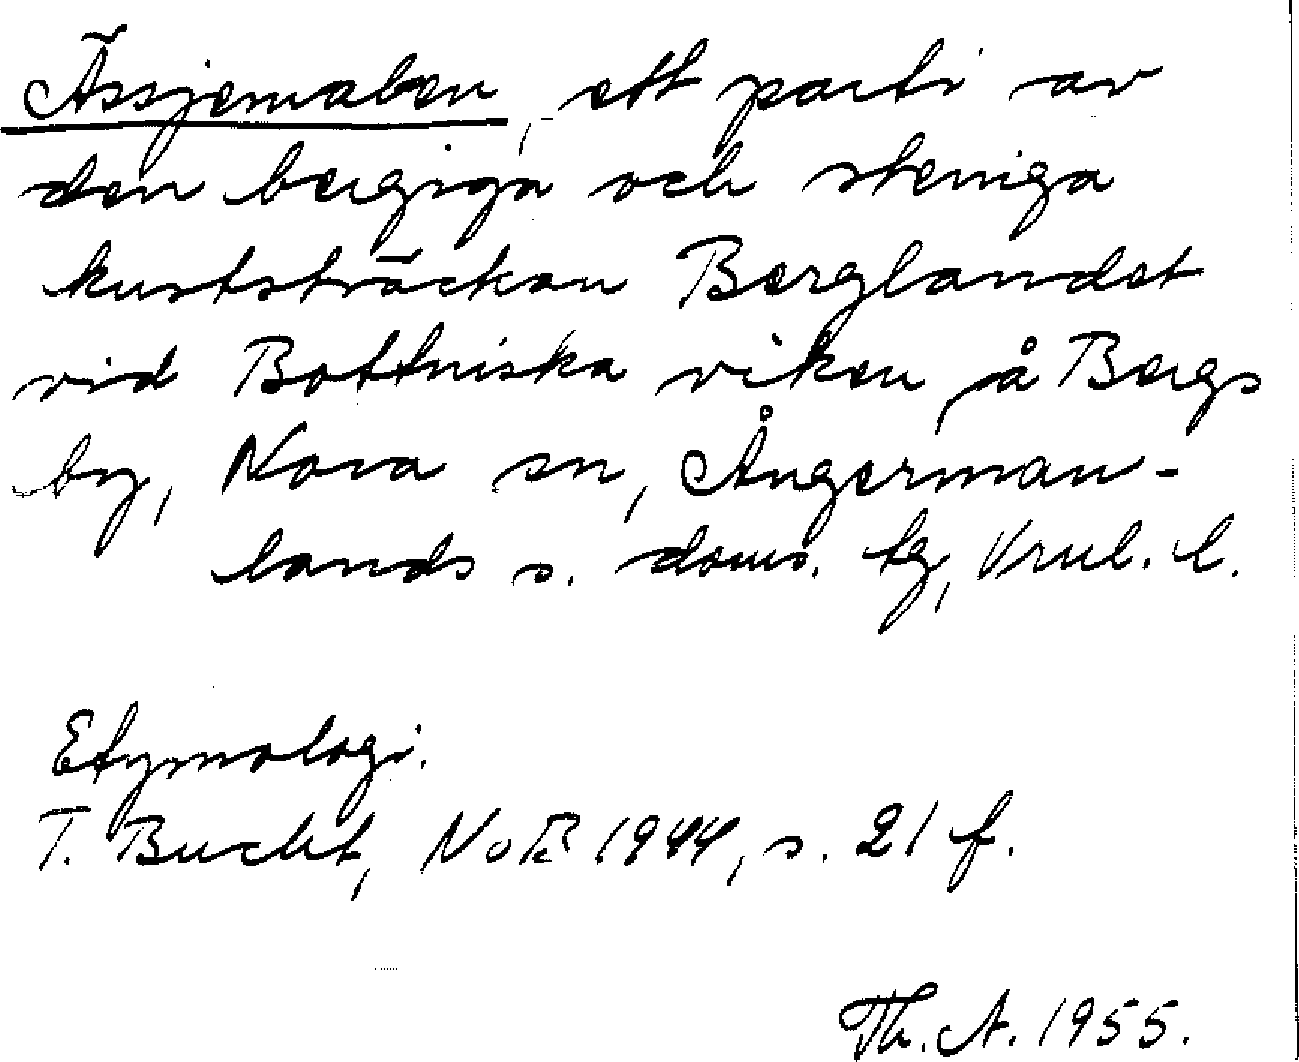 Ässjemalen, ett parti av
den bergiga och steniga
kuststräckan Berglandet
vid Bottniska viken, å Bergs
by, Nora sn, Ångerman-
lands s. doms. tg, Vrnl. l.
Etymologi.
T. Bucht, NoB 1944, s. 21 f.
Th. A. 1955.